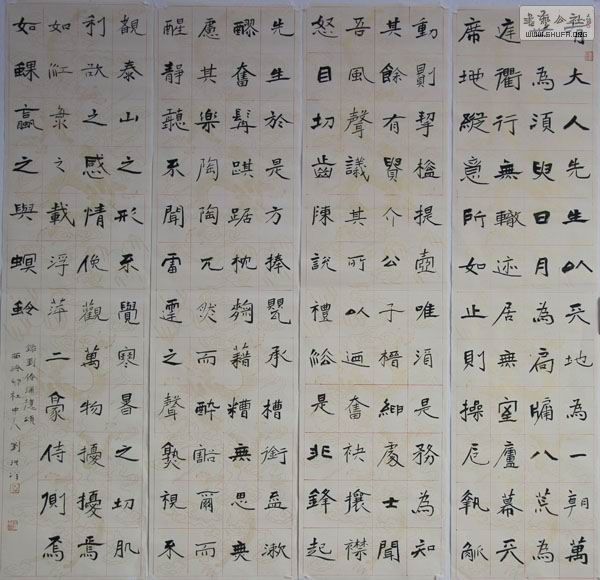 有大人先生以天地為一朝萬
期為須臾日月為扃牖八荒為
庭衢行無轍迹居無室廬幕天
席地縱意所如止則操卮執觚
動則挈榼提壺唯酒是務焉知
其餘有貴介公子搢紳處士聞
吾風聲議其所以迺奮袂攘襟
怒目切齒陳說禮法是非鋒起
先生於是方捧甖承槽銜盃漱
醪奮髯踑踞枕麴藉糟無思無
慮其樂陶陶兀然而醉豁爾而
醒靜聽不聞雷霆之聲熟視不
覩泰山之形不覺寒暑之切肌
利欲之感情俯觀萬物擾擾焉
如江漢之載浮萍二豪侍側焉
如蜾蠃之與螟蛉
錄劉伶酒德頌
西泠印社中人劉
書藝公社
WWW.SHUFA.ORG